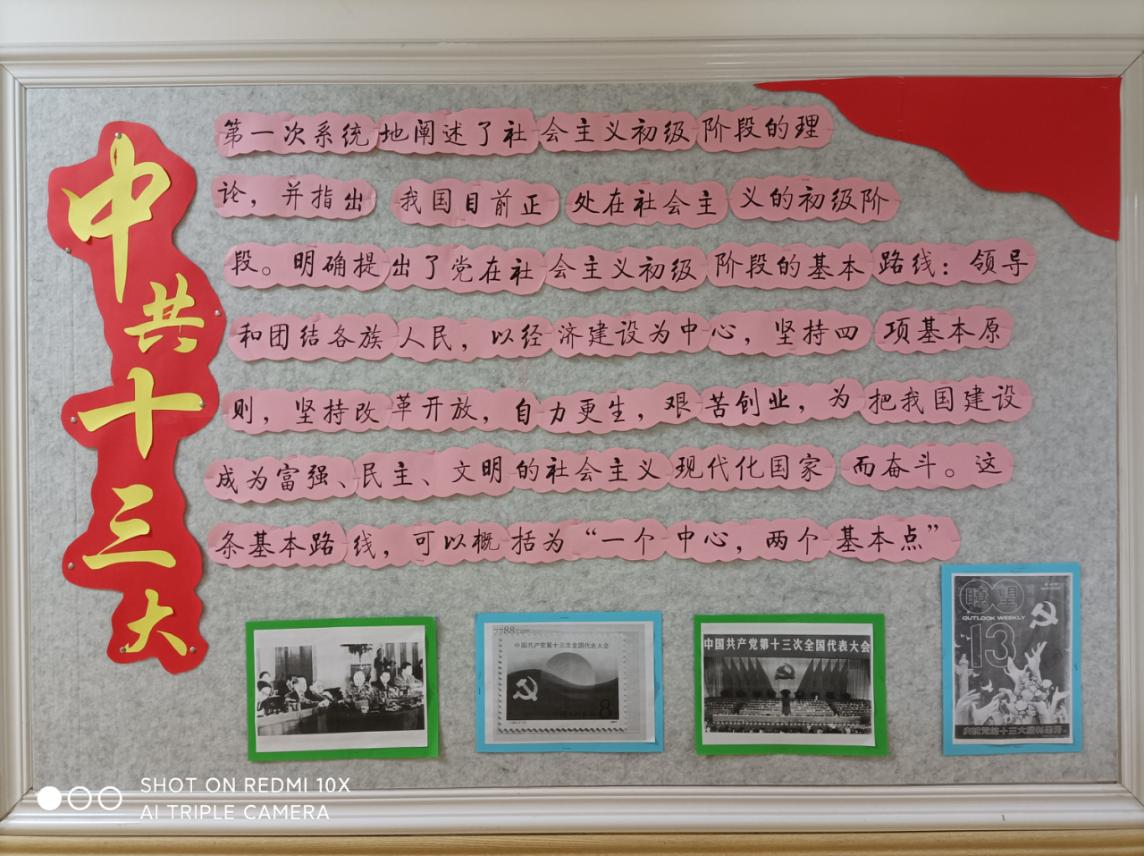 中共十三大
第一次系统地阐述了社会主义初级阶段的理
论，并指出我国目前正处在社会主义的初级阶
段。明确提出了党在社会主义初级阶段的基本路线：领导
和团结各族人民，以经济建设为中心，坚持四项基本原
则，坚持改革开放，自力更生，艰苦创业，为把我国建设
成为富强、民主、文明的社会主义现代化国家而奋斗。这
条基本路线，可以概括为“一个中心，两个基本点”
7788
中国共产党第十三次全国代表大会
8
中国共产党第十三次全国代表大会
瞭望
OUTLOOK WEEKLY
13
SHOT ON REDMI 10X
AI TRIPLE CAMERA